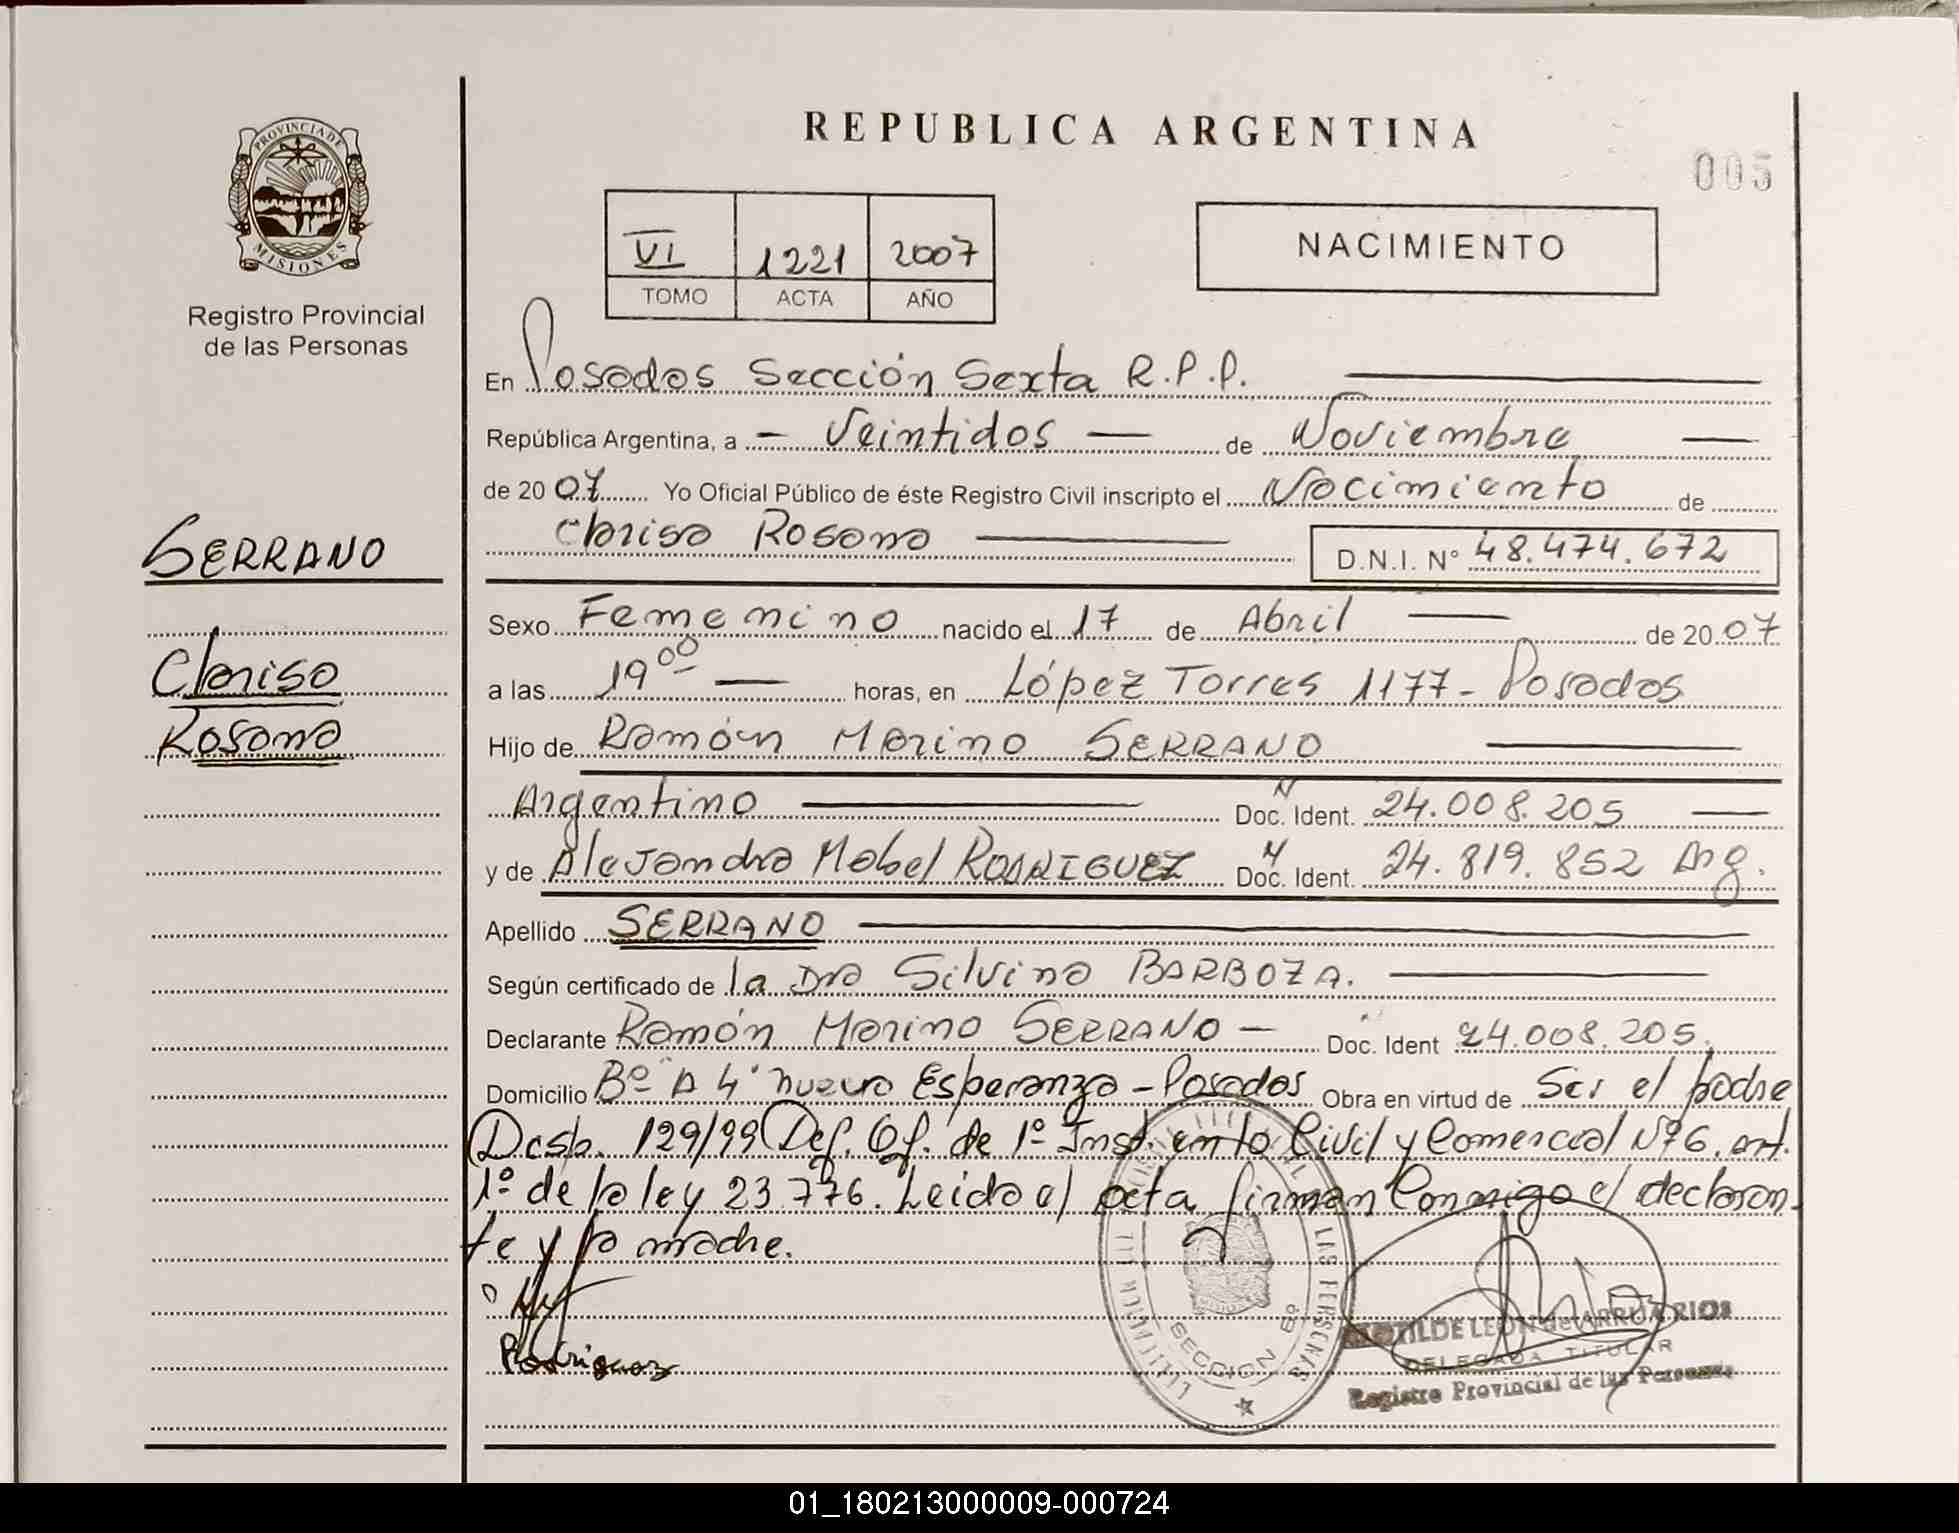 REPUBLICA ARGENTINA
005
PROVINCIA DE
MISIONES
Registro Provincial
de las Personas
VI 1221 2007
TOMO ACTA AÑO
NACIMIENTO
En Posadas Sección Sexta R.P.P.
República Argentina, a - Veintidos - de Noviembre
de 20 07 Yo Oficial Público de éste Registro Civil inscripto el Nacimiento de
Clarisa Rosana D.N.I. N° 48.474.672
SERRANO
Clarisa
Rosana
Sexo Femenino nacido el 17 de Abril de 20 07
a las 19 00 horas, en López Torres 1177 - Posadas
Hijo de Ramón Marino SERRANO
Argentino Doc. Ident. 24.008.205
y de Alejandra Mabel RODRIGUEZ Doc. Ident. 24.819.852 Arg.
Apellido SERRANO
Según certificado de la Dra Silvina BARBOZA.
Declarante Ramón Marino SERRANO - Doc. Ident 24.008.205.
Domicilio Bº A 4 nueva Esperanza - Posadas Obra en virtud de Ser el padre
Desp. 129/99 Def. Of. de 1º Inst. en lo Civil y Comercial Nº 6. art.
1º de la ley 23.776. Leido el acta firman Conmigo el declaran-
te y la madre.
Rodriguez
SECCION 6º
LEON de ARRUA RIOS
DELEGADA TITULAR
Registro Provincial de las Personas
01_180213000009-000724